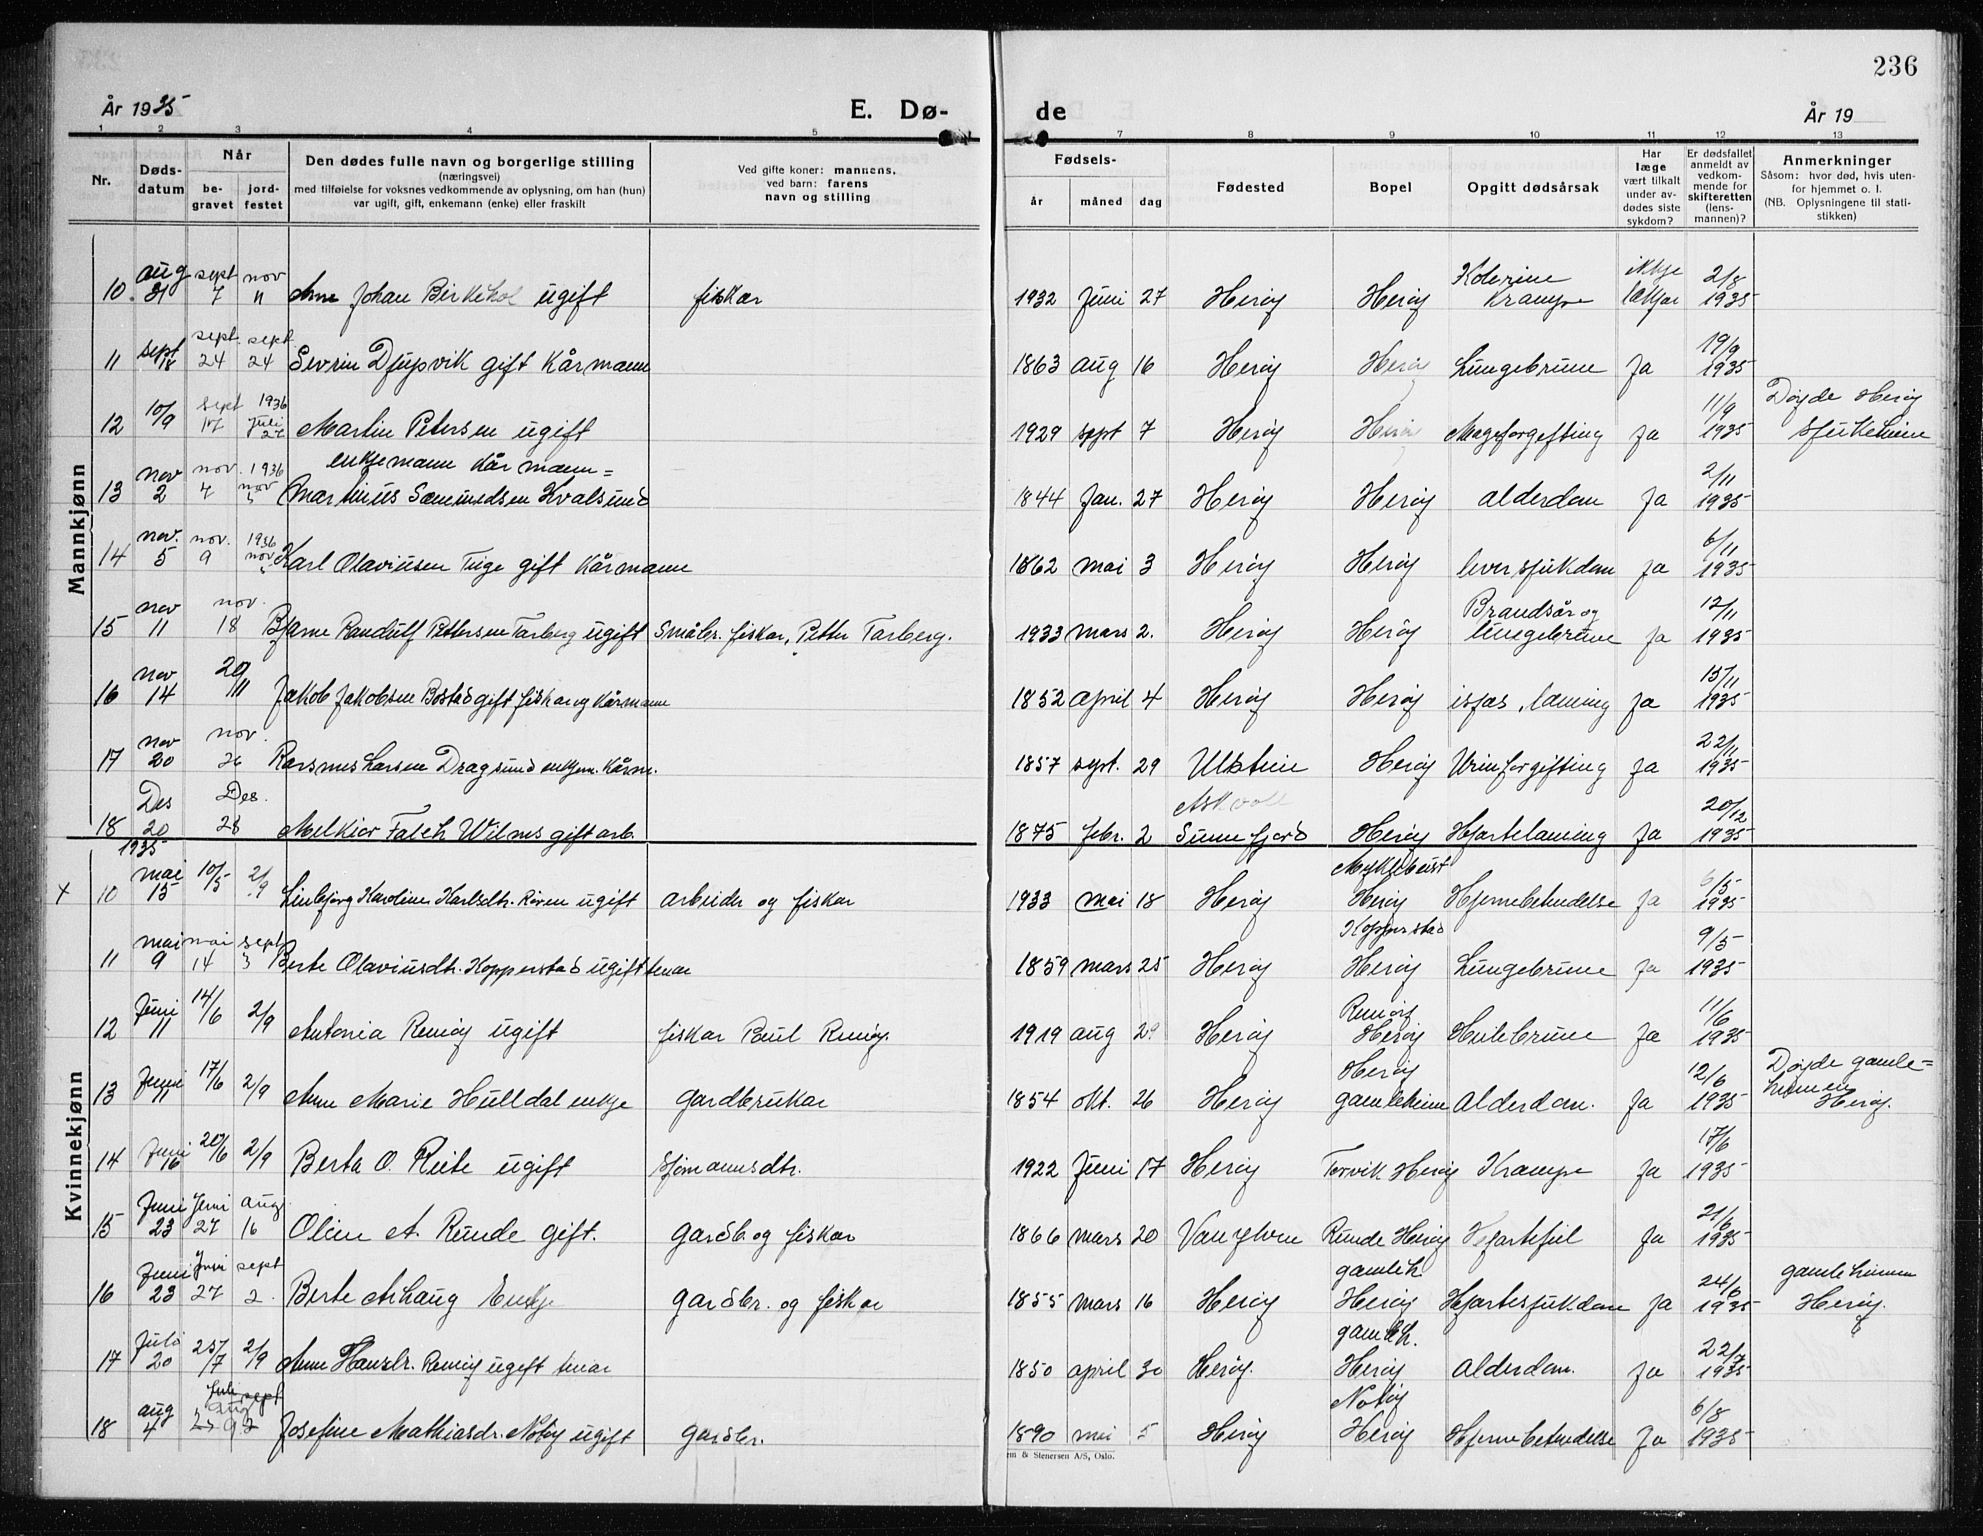 236
År 1935 E. Dø- de År 19
1 2 3 4 5 7 8 9 10 11 12 13
Nr. Døds-datum Når be-gravet jord-festet
Den dødes fulle navn og borgerlige stilling
(næringsvei)
med tilføielse for voksnes vedkommende av oplysning, om han (hun)
var ugift, gift, enkemann (enke) eller fraskilt
Ved gifte koner: mannens,
ved barn: farens
navn og stilling
Fødsels- år måned dag
Fødested
Bopel
Opgitt dødsårsak
Har læge vært tilkalt under av-dødes siste sykdom?
Er dødsfallet anmeldt av vedkom-mende for skifteretten (lens-mannen)?
Anmerkninger
Såsom: hvor død, hvis uten-for hjemmet o. l.
(NB. Oplysningene til stati-stikken)
Mannkjønn
10 aug 31 sept 7 nov 11 Arne Johan Birkehol ugift fiskar 1932 Juni 27 Herøy Herøy Kolerine Krampe ikkje lækjar 2/8 1935
11 sept 18 sept 24 sept 24 Sevrin Djupvik gift Kårmann 1863 aug 16 Herøy Herøy Lungebrune Ja 19/9 1935
12 10/9 sept 17 1936 Juli 27 Martin Petersen ugift 1929 sept 7 Herøy Herøy Mageforgefting Ja 11/9 1935 Døyde Herøy sjukeheim
13 nov 2 nov. 4 1936 nov 5 enkjemann Kårmann= Martinus Sæmundsen Kvalsund 1844 Jan. 27 Herøy Herøy alderdom Ja 2/11 1935
14 nov. 5 nov. 9 1936 nov Karl Olaviusen Tuge gift Kårmann 1862 mai 3 Herøy Herøy leversjukdom Ja 6/11 1935
15 nov 11 nov. 18 Bjarne Randulf Pettersen Tarberg ugift Småbr. fiskar, Petter Tarberg. 1933 mars 2. Herøy Herøy Brandsår og lungebrune Ja 12/11 1935
16 nov 14 20/11 Jakob Jakobsen Bostad gift fiskar og Kårmann 1852 april 4 Herøy Herøy isjas, laming Ja 15/11 1935
17 nov 20 nov. 26 Rasmus Larsen Dragsund enkjem. Kårm. 1857 sept. 29 Ulstein Herøy Urinforgifting Ja 22/11 1935
18 Des 20 Des. 28 Melkior Falch Wilms gift arb. 1875 febr. 2 Askvoll Sunnfjord Herøy Hjartelaming Ja 20/12 1935
1935
Kvinnekjønn
x 10 mai 15 10/5 2/9 Linbjørg Karoline Karlsdtr. Røren ugift arbeider og fiskar 1933 mai 18 Herøy Myklebust Herøy Hjernebetendelse Ja 6/5 1935
11 mai 9 mai 14 sept 3 Berte Olaviusdtr. Kopperstad ugift tenar 1859 mars 25 Herøy Kopperstad Herøy Lungebrune Ja 9/5 1935
12 Juni 11 14/6 2/9 Antonia Remøy ugift fiskar Paul Remøy. 1919 aug 29 Herøy Remøy Herøy Heilebrune Ja 11/6 1935
13 Juni 11 17/6 2/9 Anne Marie Hulldal enkje Gardbrukar 1854 okt. 26 Herøy Herøy gamleheim Alderdom. Ja 12/6 1935 Døyde gamle=heimen Herøy.
14 Juni 16 20/6 2/9 Berta O. Reite ugift Sjømannsdtr. 1922 Juni 17 Herøy Torvik Herøy Krampe Ja 17/6 1935
15 Juni 23 Juni 27 aug 16 Oline A. Runde gift. Gardb og fiskar 1866 mars 20 Vanylven Runde Herøy Hjartefeil Ja 21/6 1935
16 Juni 23 Juni 27 sept 2. Berte Arhaug Enkje Gardbr. og fiskar 1855 mars 16 Herøy gamleh Herøy Hjartesjukdom Ja 24/6 1935 gamleheimen Herøy.
17 Juli 20 25/7 2/9 Anne Hansdtr. Remøy ugift tenar 1850 april 30 Herøy. gamleh. Herøy Alderdom. Ja 22/7 1935
18 aug 4 aug 9 sept 2 Josefine Mathiasdr. Notøy ugift Gardbr. 1890 mai 5 Herøy Notøy Herøy Hjernebetendelse Ja 6/8 1935
em & Stenersen A/S, Oslo.